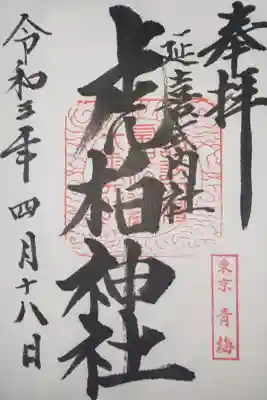 奉拝
延喜式内社
虎柏神社
東京 青梅
令和三年四月十八日